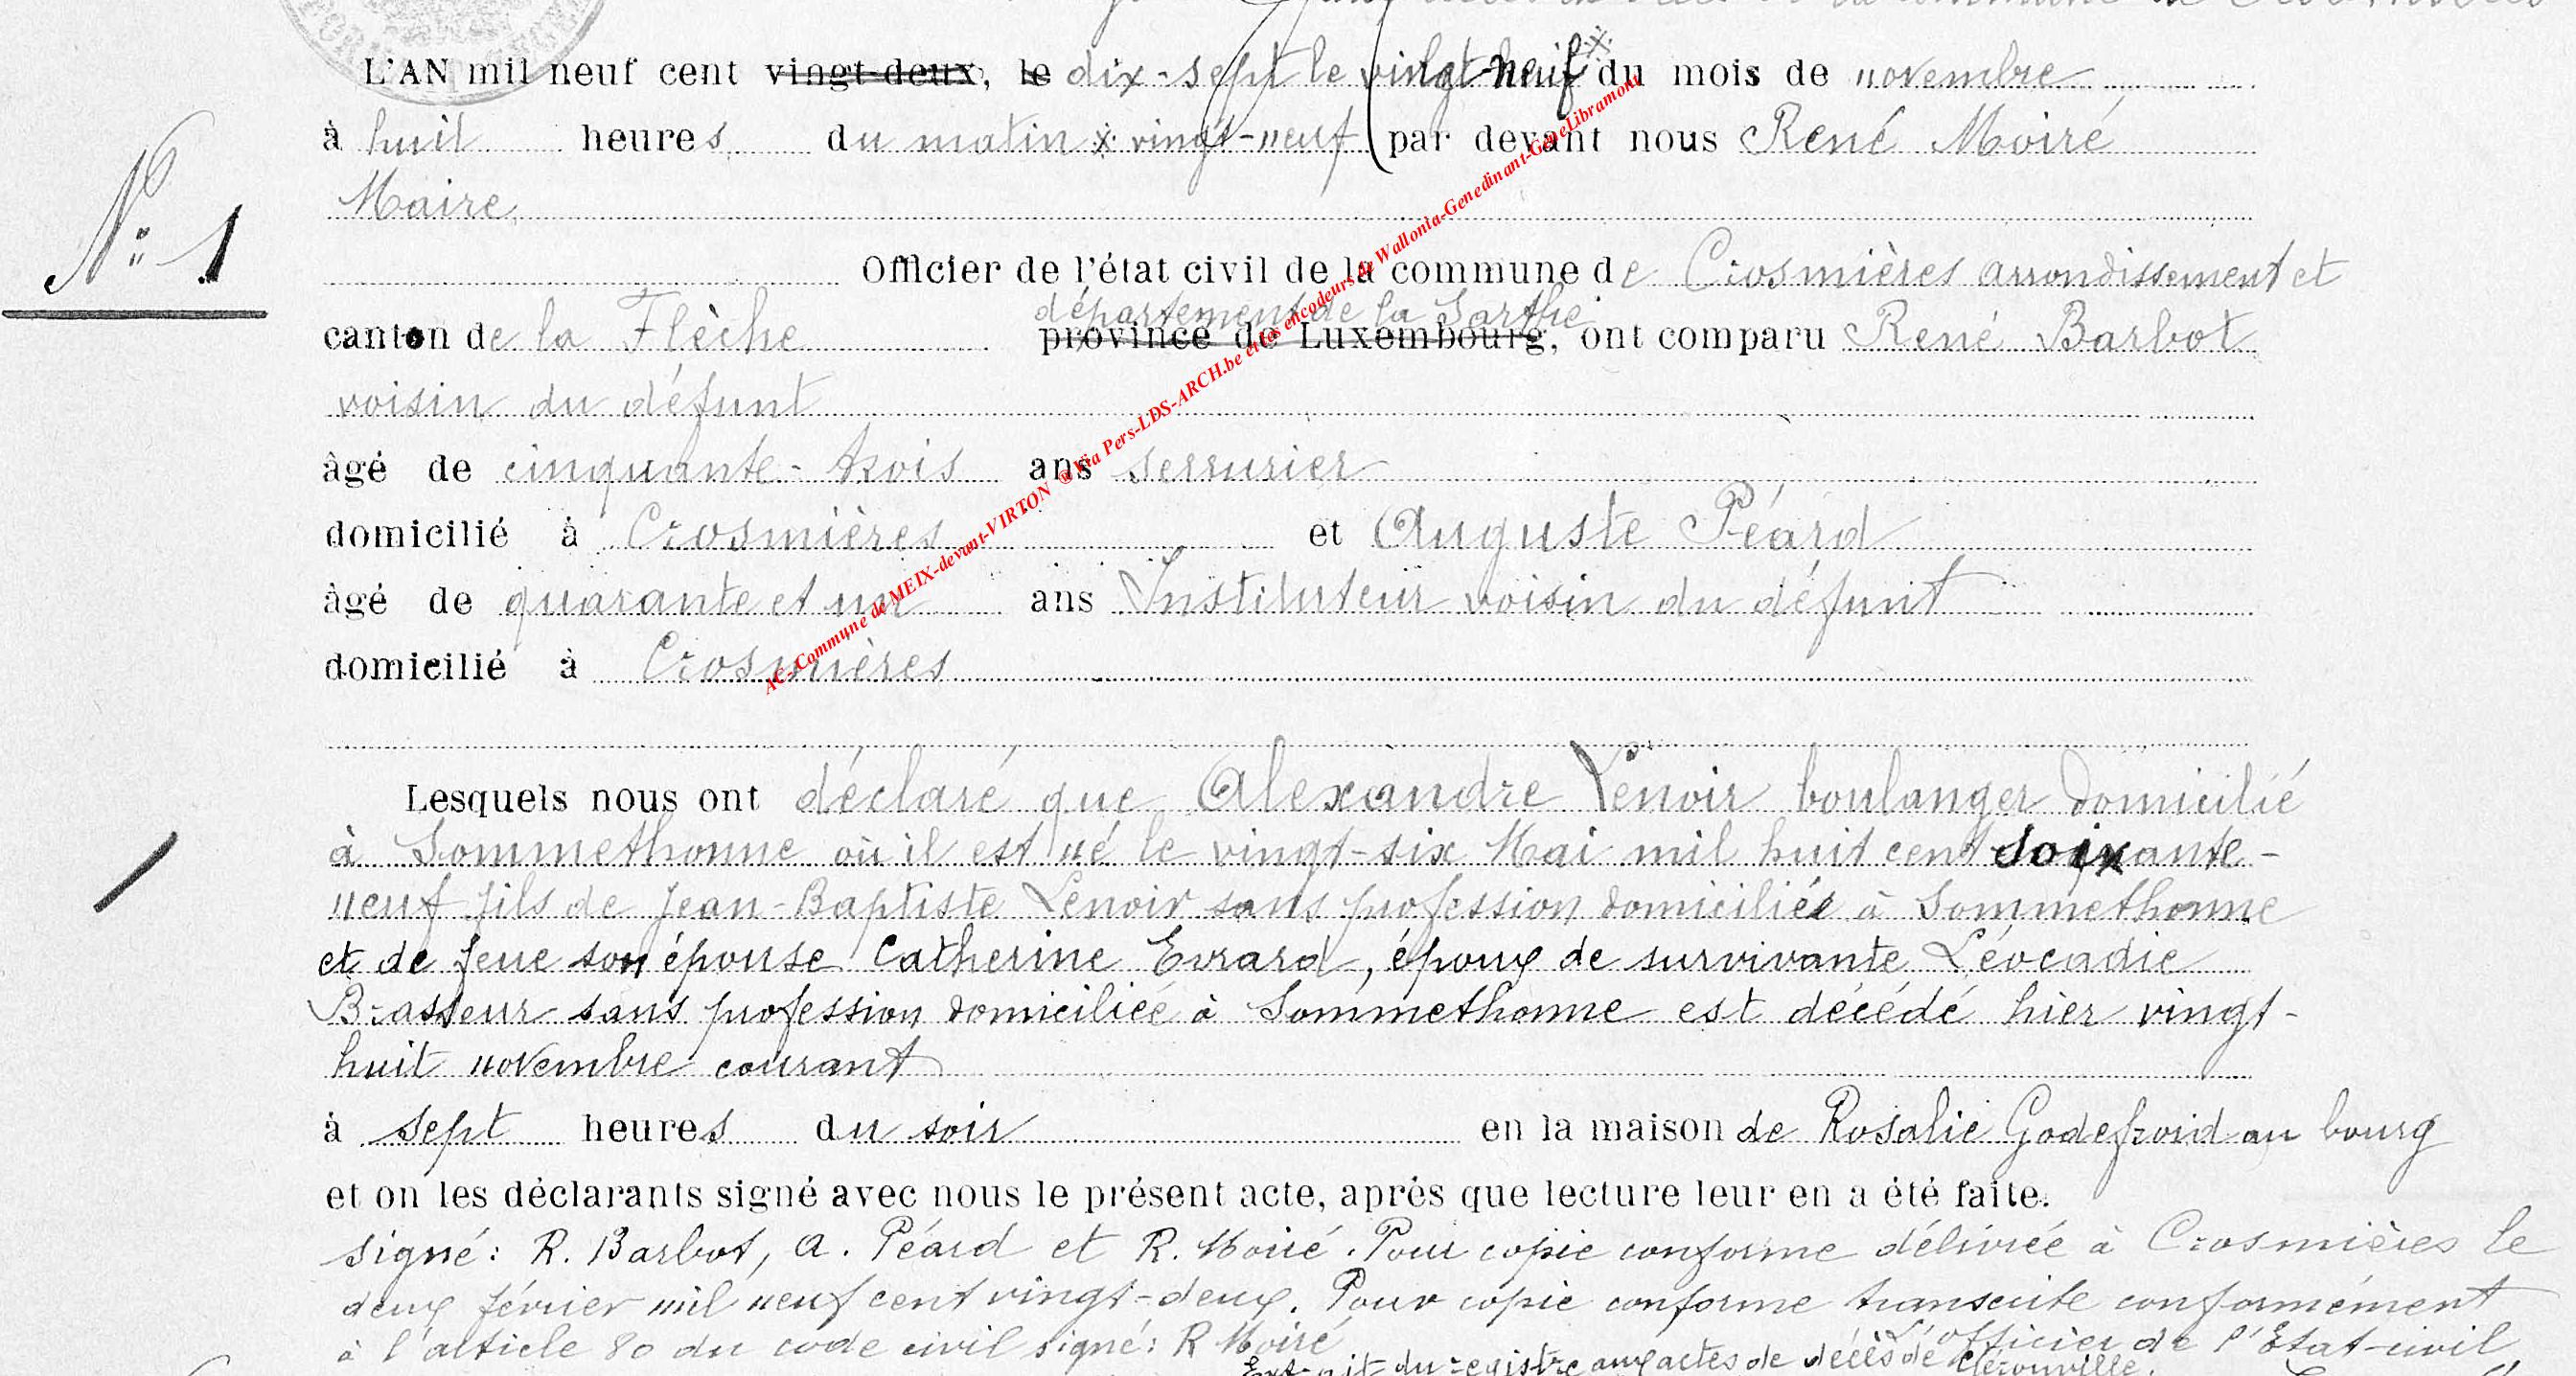 L'AN mil neuf cent vingt-deux, le dix-sept le vingt-neuf du mois de novembre
à huit heures du matin x vingt-neuf par devant nous René Moiré
Maire
N° 1
Officier de l'état civil de la commune de Crosmières arrondissement et
département de la Sarthe
canton de la Flèche province de Luxembourg, ont comparu René Barbot
voisin du défunt
âgé de cinquante-trois ans serrurier
domicilié à Crosmières et Auguste Péard
âgé de quarante et un ans Instituteur voisin du défunt
domicilié à Crosmières
AC-Commune de MEIX-devant-VIRTON @ Via Pers-LDS-ARCH.be et les encodeurs de Wallonia-Genedinant-GeneLibramont
Lesquels nous ont déclaré que Alexandre Lenoir boulanger domicilié
à Sommethonne où il est né le vingt-six Mai mil huit cent soixante-
neuf fils de Jean-Baptiste Lenoir sans profession domicilié à Sommethonne
et de feue son épouse Catherine Evrard, époux de survivante Léocadie
Brasseur sans profession domiciliée à Sommethonne est décédé hier vingt-
huit novembre courant
à sept heures du soir en la maison de Rosalie Godefroid au bourg
et on les déclarants signé avec nous le présent acte, après que lecture leur en a été faite.
signé: R. Barbot, A. Péard et R. Moiré. Pour copie conforme délivrée à Crosmières le
deux février mil neuf cent vingt-deux. Pour copie conforme transcrite conformément
à l'article 80 du code civil signé: R Moiré
L'officier de l'Etat-civil
Extrait du registre aux actes de décès de